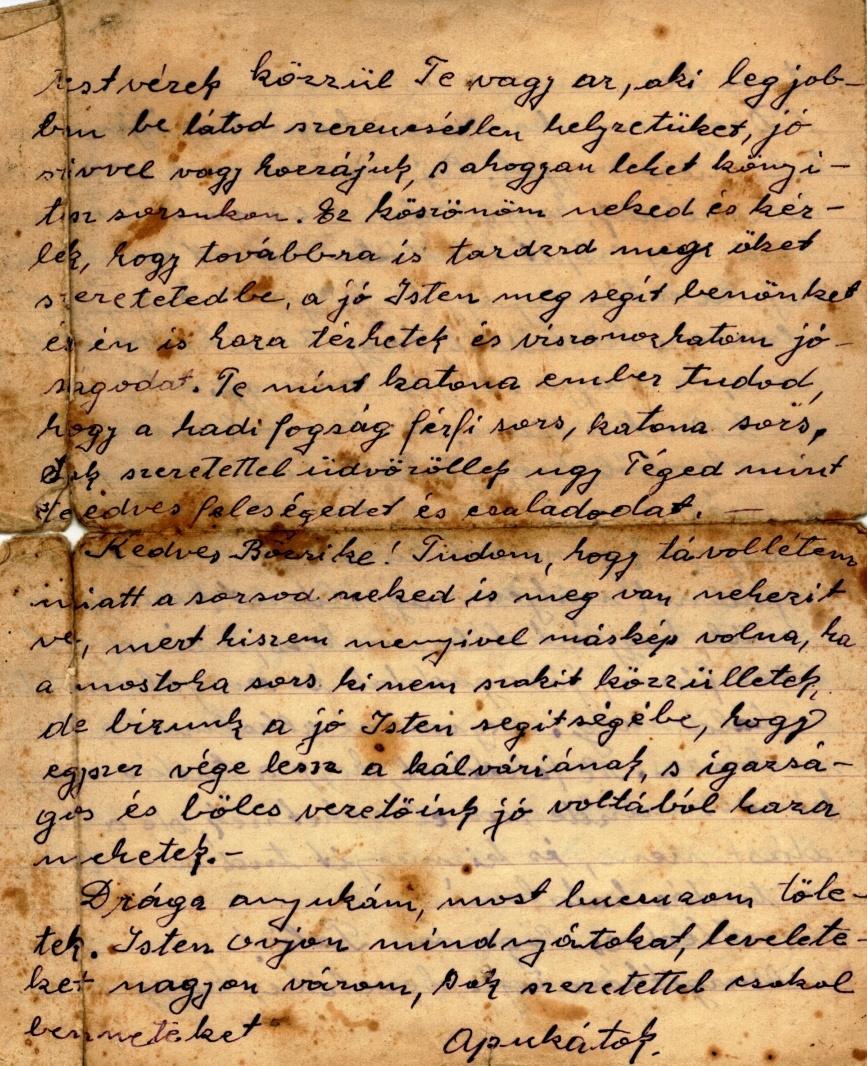 testvérek közzül Te vagy az, aki legjob-
ban be látod szerencsétlen helyzetüket, jó
sivvel vagy hozzájuk, s ahoggan lehet könyi-
tesz sorsukon. Ez köszönöm neked és kér-
lek, hogy továbbra is tardzsd meg öket
szeretetedbe, a jó Isten meg segít benönket
és én is haza térhetek és viszonozhatom jó-
ságodat. Te mint katona ember tudod,
hogy a hadi fogság férfi sors, katona sors,
Sok szeretettel üdvözöllek ugy Téged mint
kedves feleségedet és családodat. —
Kedves Böszike! Tudom, hogy távollétem
miatt a sorsod neked is meg van nehezit
ve, mert hiszem menyivel máskép volna, ha
a mostoha sors ki nem szakit közzülletek,
de bízunk a jó Isten segitségébe, hogy
egyszer vége lessz a kálváriának, s igazsá-
gos és bölcs vezetőink jó voltából haza
mehetek.-
Drága anyukám, most bucsuzom töle-
tek. Isten ovjon mindnyátokat, levelete-
ket nagyon várom, Sok szeretettel csokol
benneteket
Apukátok.